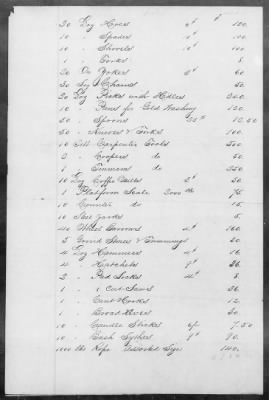 $
20 Doz Hoes 6 120.
10 " Spades 10 100.
10 " Shovels 10 100.
1 " Forks 8.
20 Ox Yokes 3 60
20 Log Chains 50.
20 Doz Picks with Helves 200.
10 " Pans for Gold Washing 120.
50 " Spoons 25 12.50
20 " Knives & Forks 100.
10 Sett Carpenter Tools 500.
2 " Coopers do 50
10 " Tinmans do 250
10 Doz Coffee Mills
1 Platform Scale 2000 lbs 75.
10 Counter do 15.
10 Steel Yards 5.
40 Wheel Barrows 4 160.
3 Grind Stones & Trimmings 20.
4 Doz Hammers 4 16
4 " Hatchets 9 36.
2 " Pad Locks 4 8.
1 " X Cut Saws 36.
1 " Cant Hooks 12.
1 " Broad Axes 20.
10 " Candle Sticks 6/ 7.50
10 " Sythes 9 90.
1000 lbs Rope Assorted Size 140.